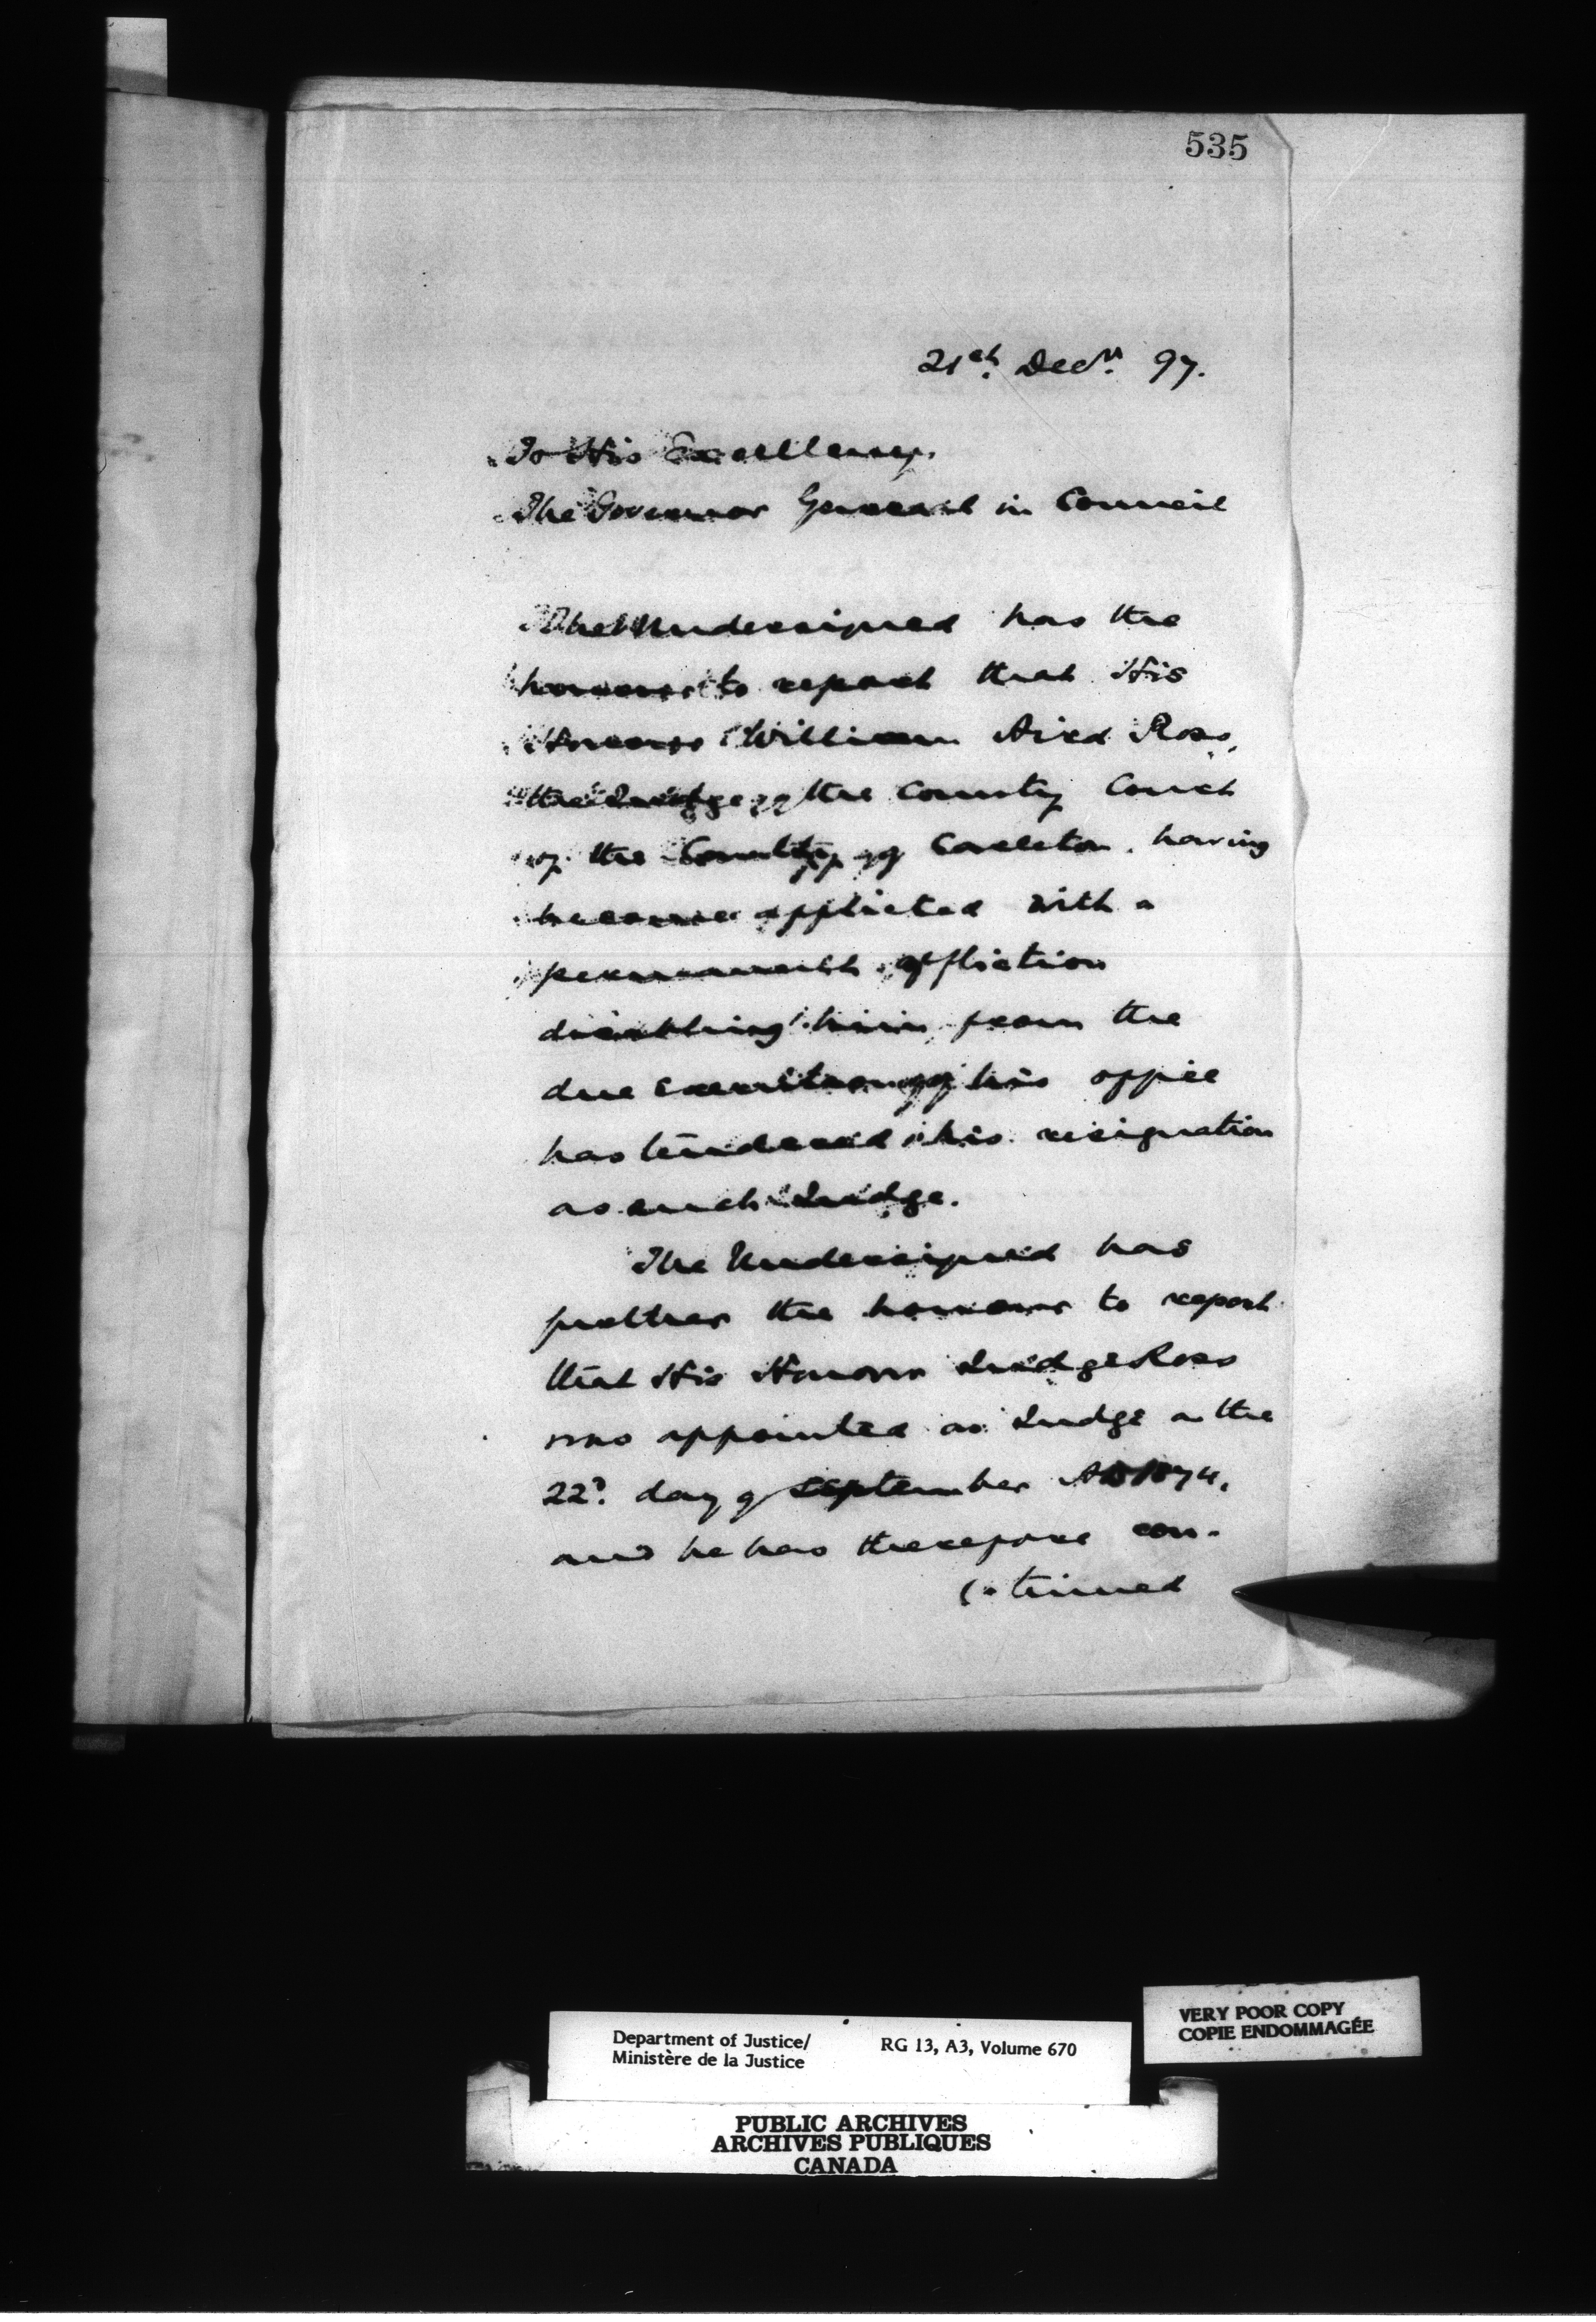 535
21st Decr. 97.
To His Excellency,
The Governor General in Council
The Undersigned has the
honour to report that His
Honour William Aird Ross,
the Judge of the County Court
of the County of Carleton, having
become afflicted with a
permanent affliction
disabling him from the
due execution of his office
has tendered his resignation
as such Judge.
The Undersigned has
further the honour to report
that His Honour Judge Ross
was appointed as Judge on the
22d. day of September AD 1874,
and he has therefore con-
tinued
Department of Justice/
Ministère de la Justice
RG 13, A3, Volume 670
VERY POOR COPY
COPIE ENDOMMAGÉE
PUBLIC ARCHIVES
ARCHIVES PUBLIQUES
CANADA